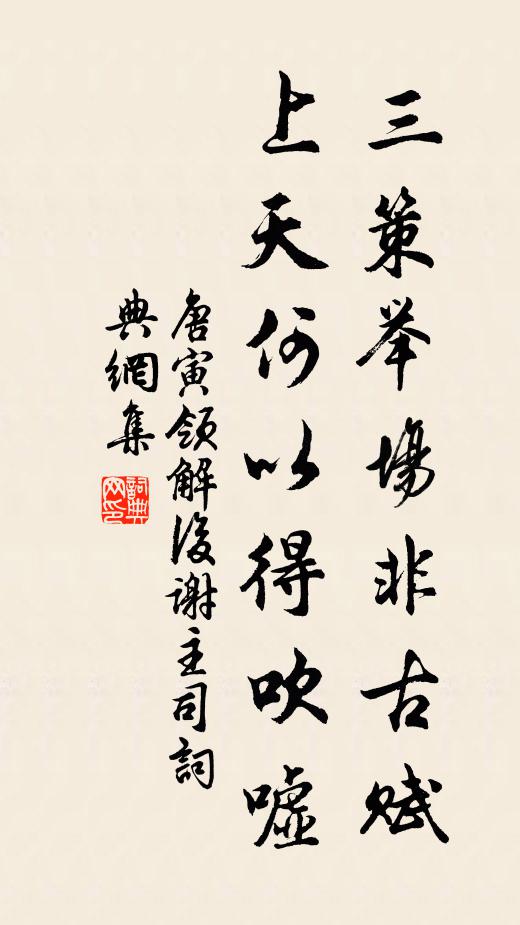 三策举場非古賦
上天何以得吹噓
唐寅領解後谢主司詞
典網集
詞典
网印